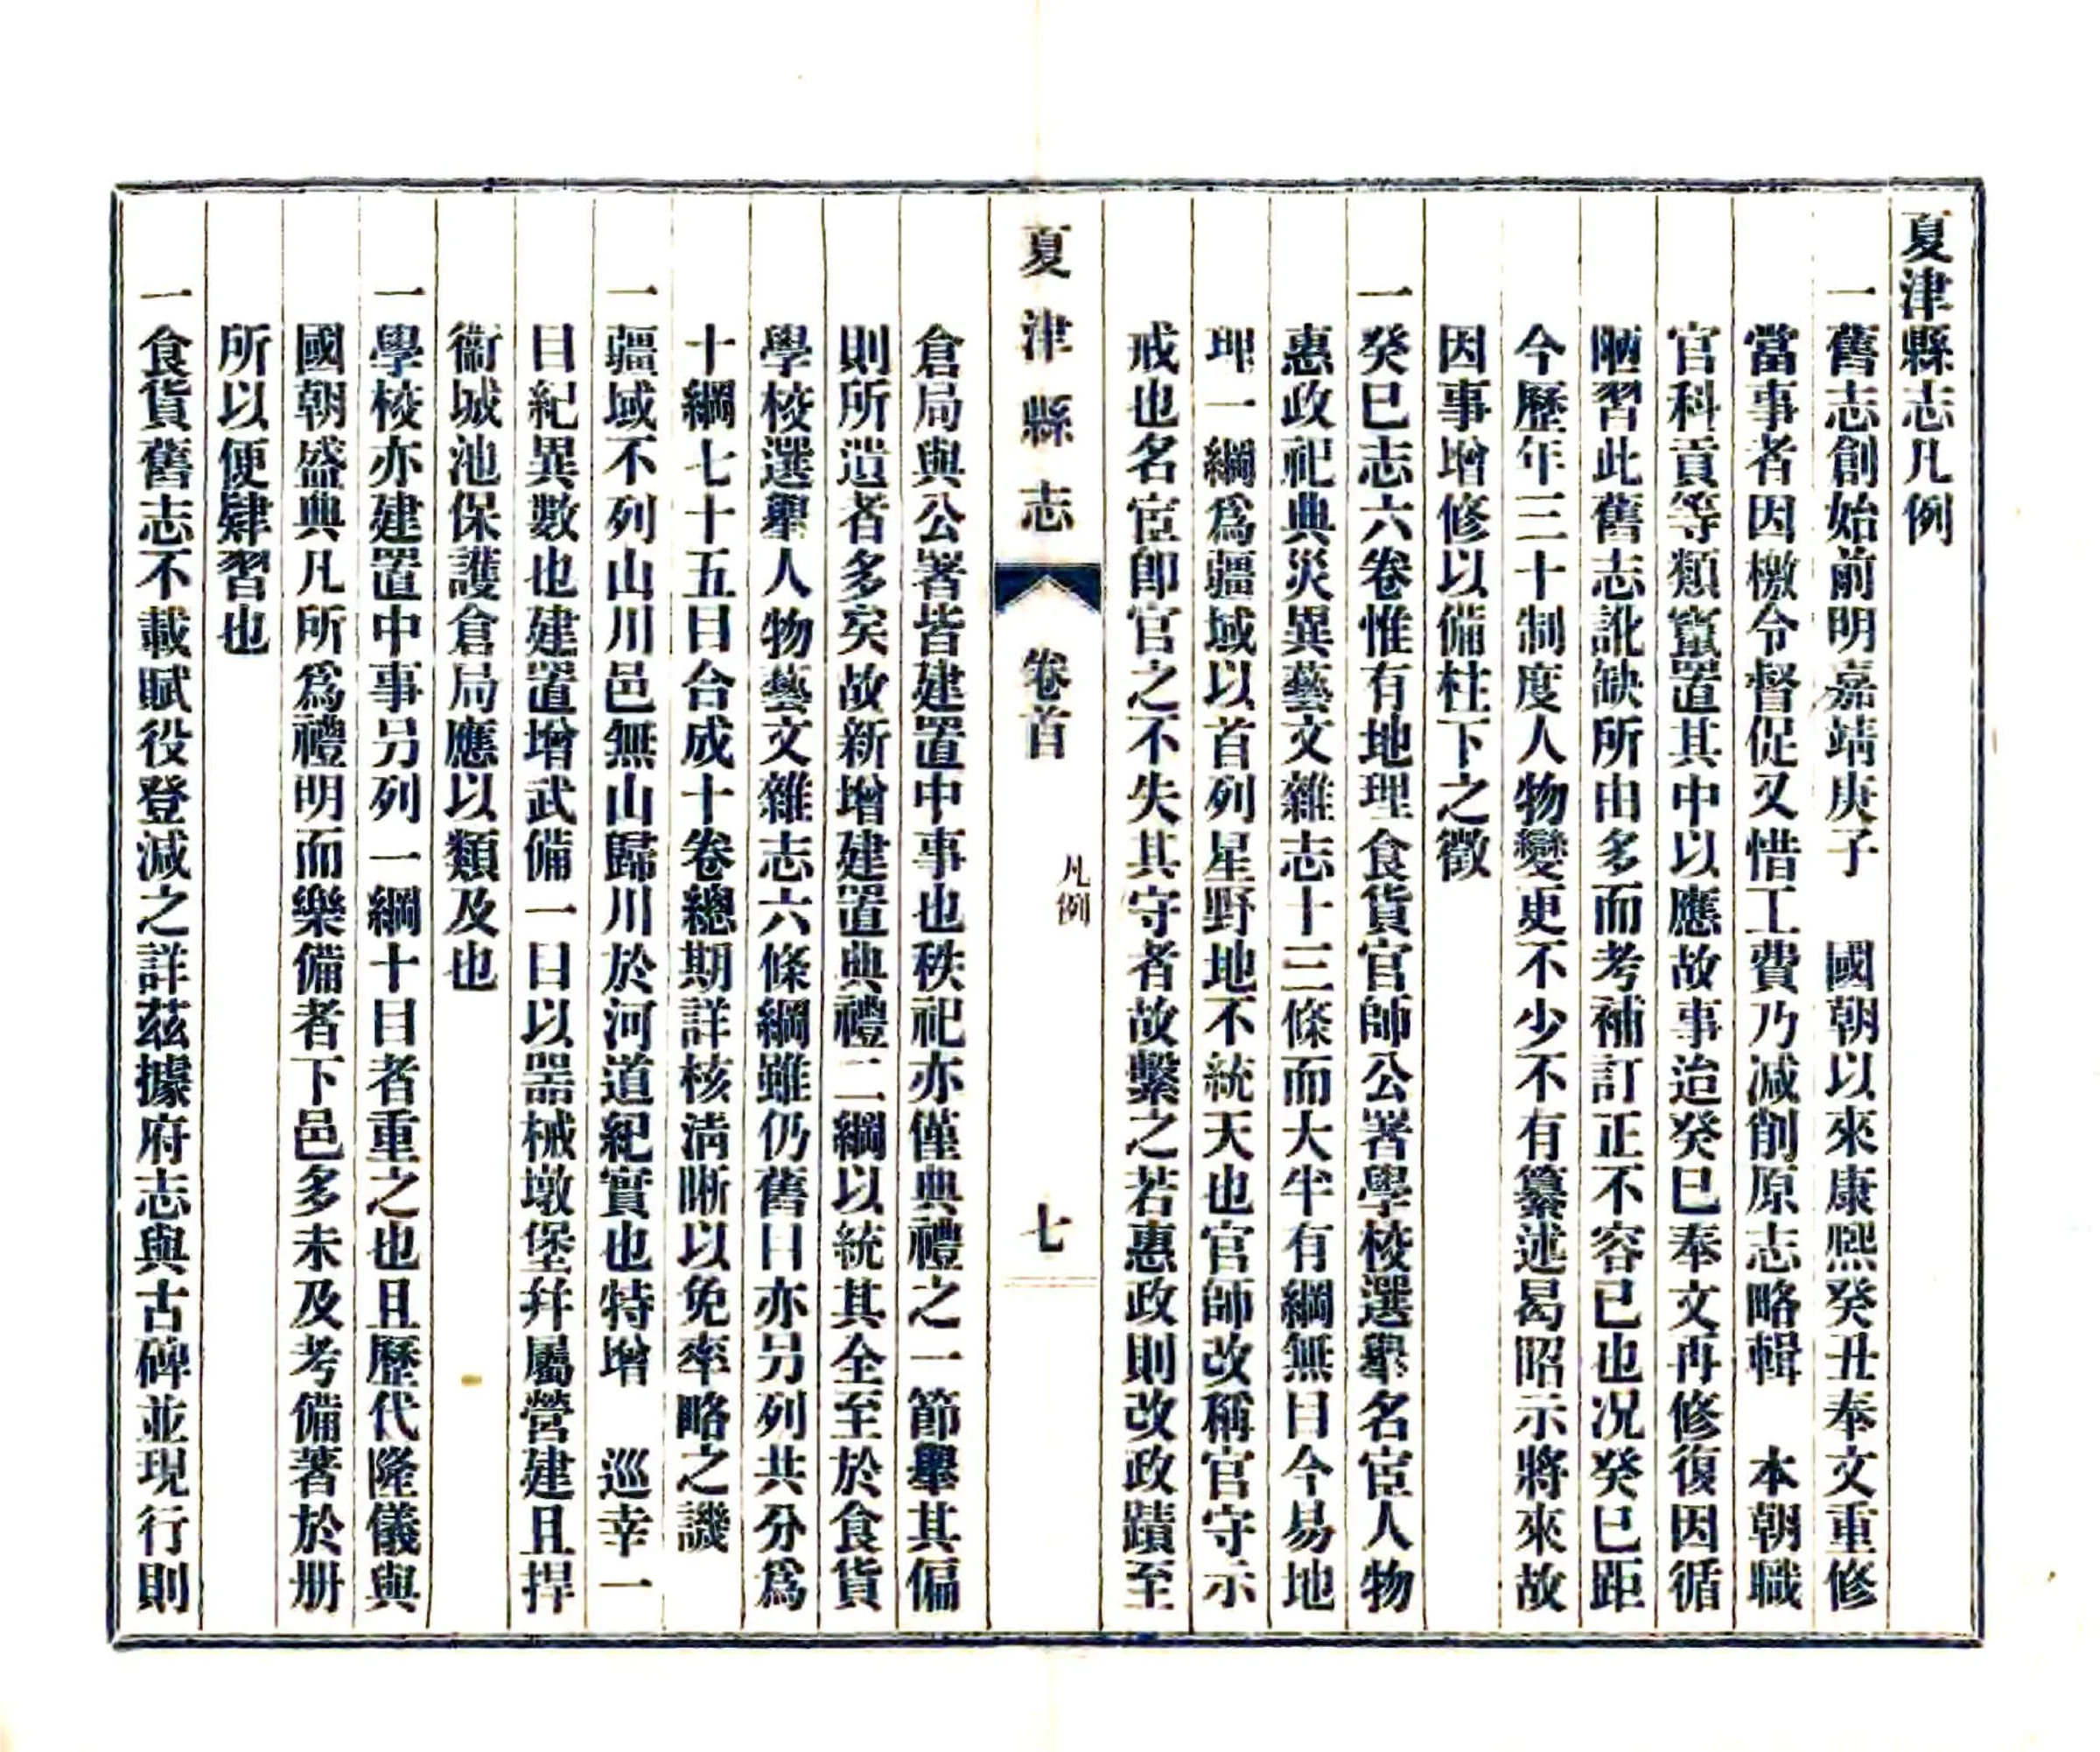 夏津縣志凡例
一舊志創始前明嘉靖庚子　國朝以來康熙癸丑奉文重修
當事者因檄令督促又惜工費乃減削原志略輯　本朝職
官科貢等類竄置其中以應故事迨癸巳奉文再修復因循
陋習此舊志訛缺所由多而考補訂正不容已也况癸巳距
今歷年三十制度人物變更不少不有纂述曷昭示將來故
因事增修以備柱下之徵
一癸巳志六卷惟有地理食貨官師公署學校選舉名宦人物
惠政祀典災異藝文雜志十三條而大半有綱無目今易地
理一綱爲疆域以首列星野地不統天也官師改稱官守示
戒也名宦即官之不失其守者故繫之若惠政則改政蹟至
夏津縣志
卷首
凡例
七
倉局與公署皆建置中事也秩祀亦僅典禮之一節舉其偏
則所遺者多矣故新增建置典禮二綱以統其全至於食貨
學校選舉人物藝文雜志六條綱雖仍舊目亦另列共分爲
十綱七十五目合成十卷總期詳核淸晰以免率略之譏
一疆域不列山川邑無山歸川於河道紀實也特增　巡幸一
目紀異數也建置增武備一目以器械墩堡幷屬營建且捍
衞城池保護倉局應以類及也
一學校亦建置中事另列一綱十目者重之也且歷代隆儀與
國朝盛典凡所爲禮明而樂備者下邑多未及考備著於册
所以便肄習也
一食貨舊志不載賦役登減之詳茲據府志與古碑並現行則